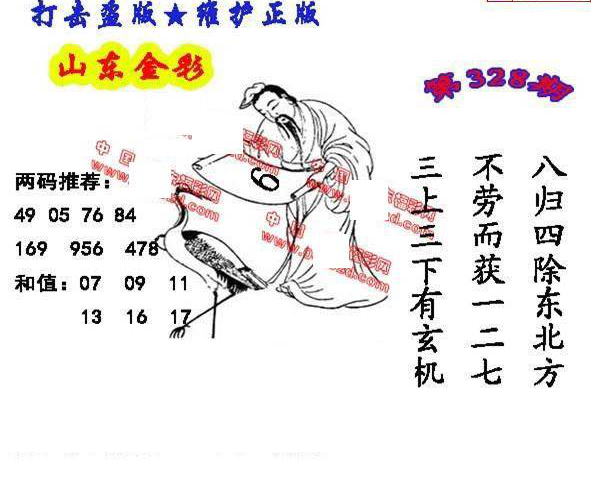 打击盗版★维护正版
山东金彩
第328期
两码推荐：
49 05 76 84
169 956 478
和值：07 09 11
13 16 17
6
八归四除东北方
不劳而获一二七
三上三下有玄机